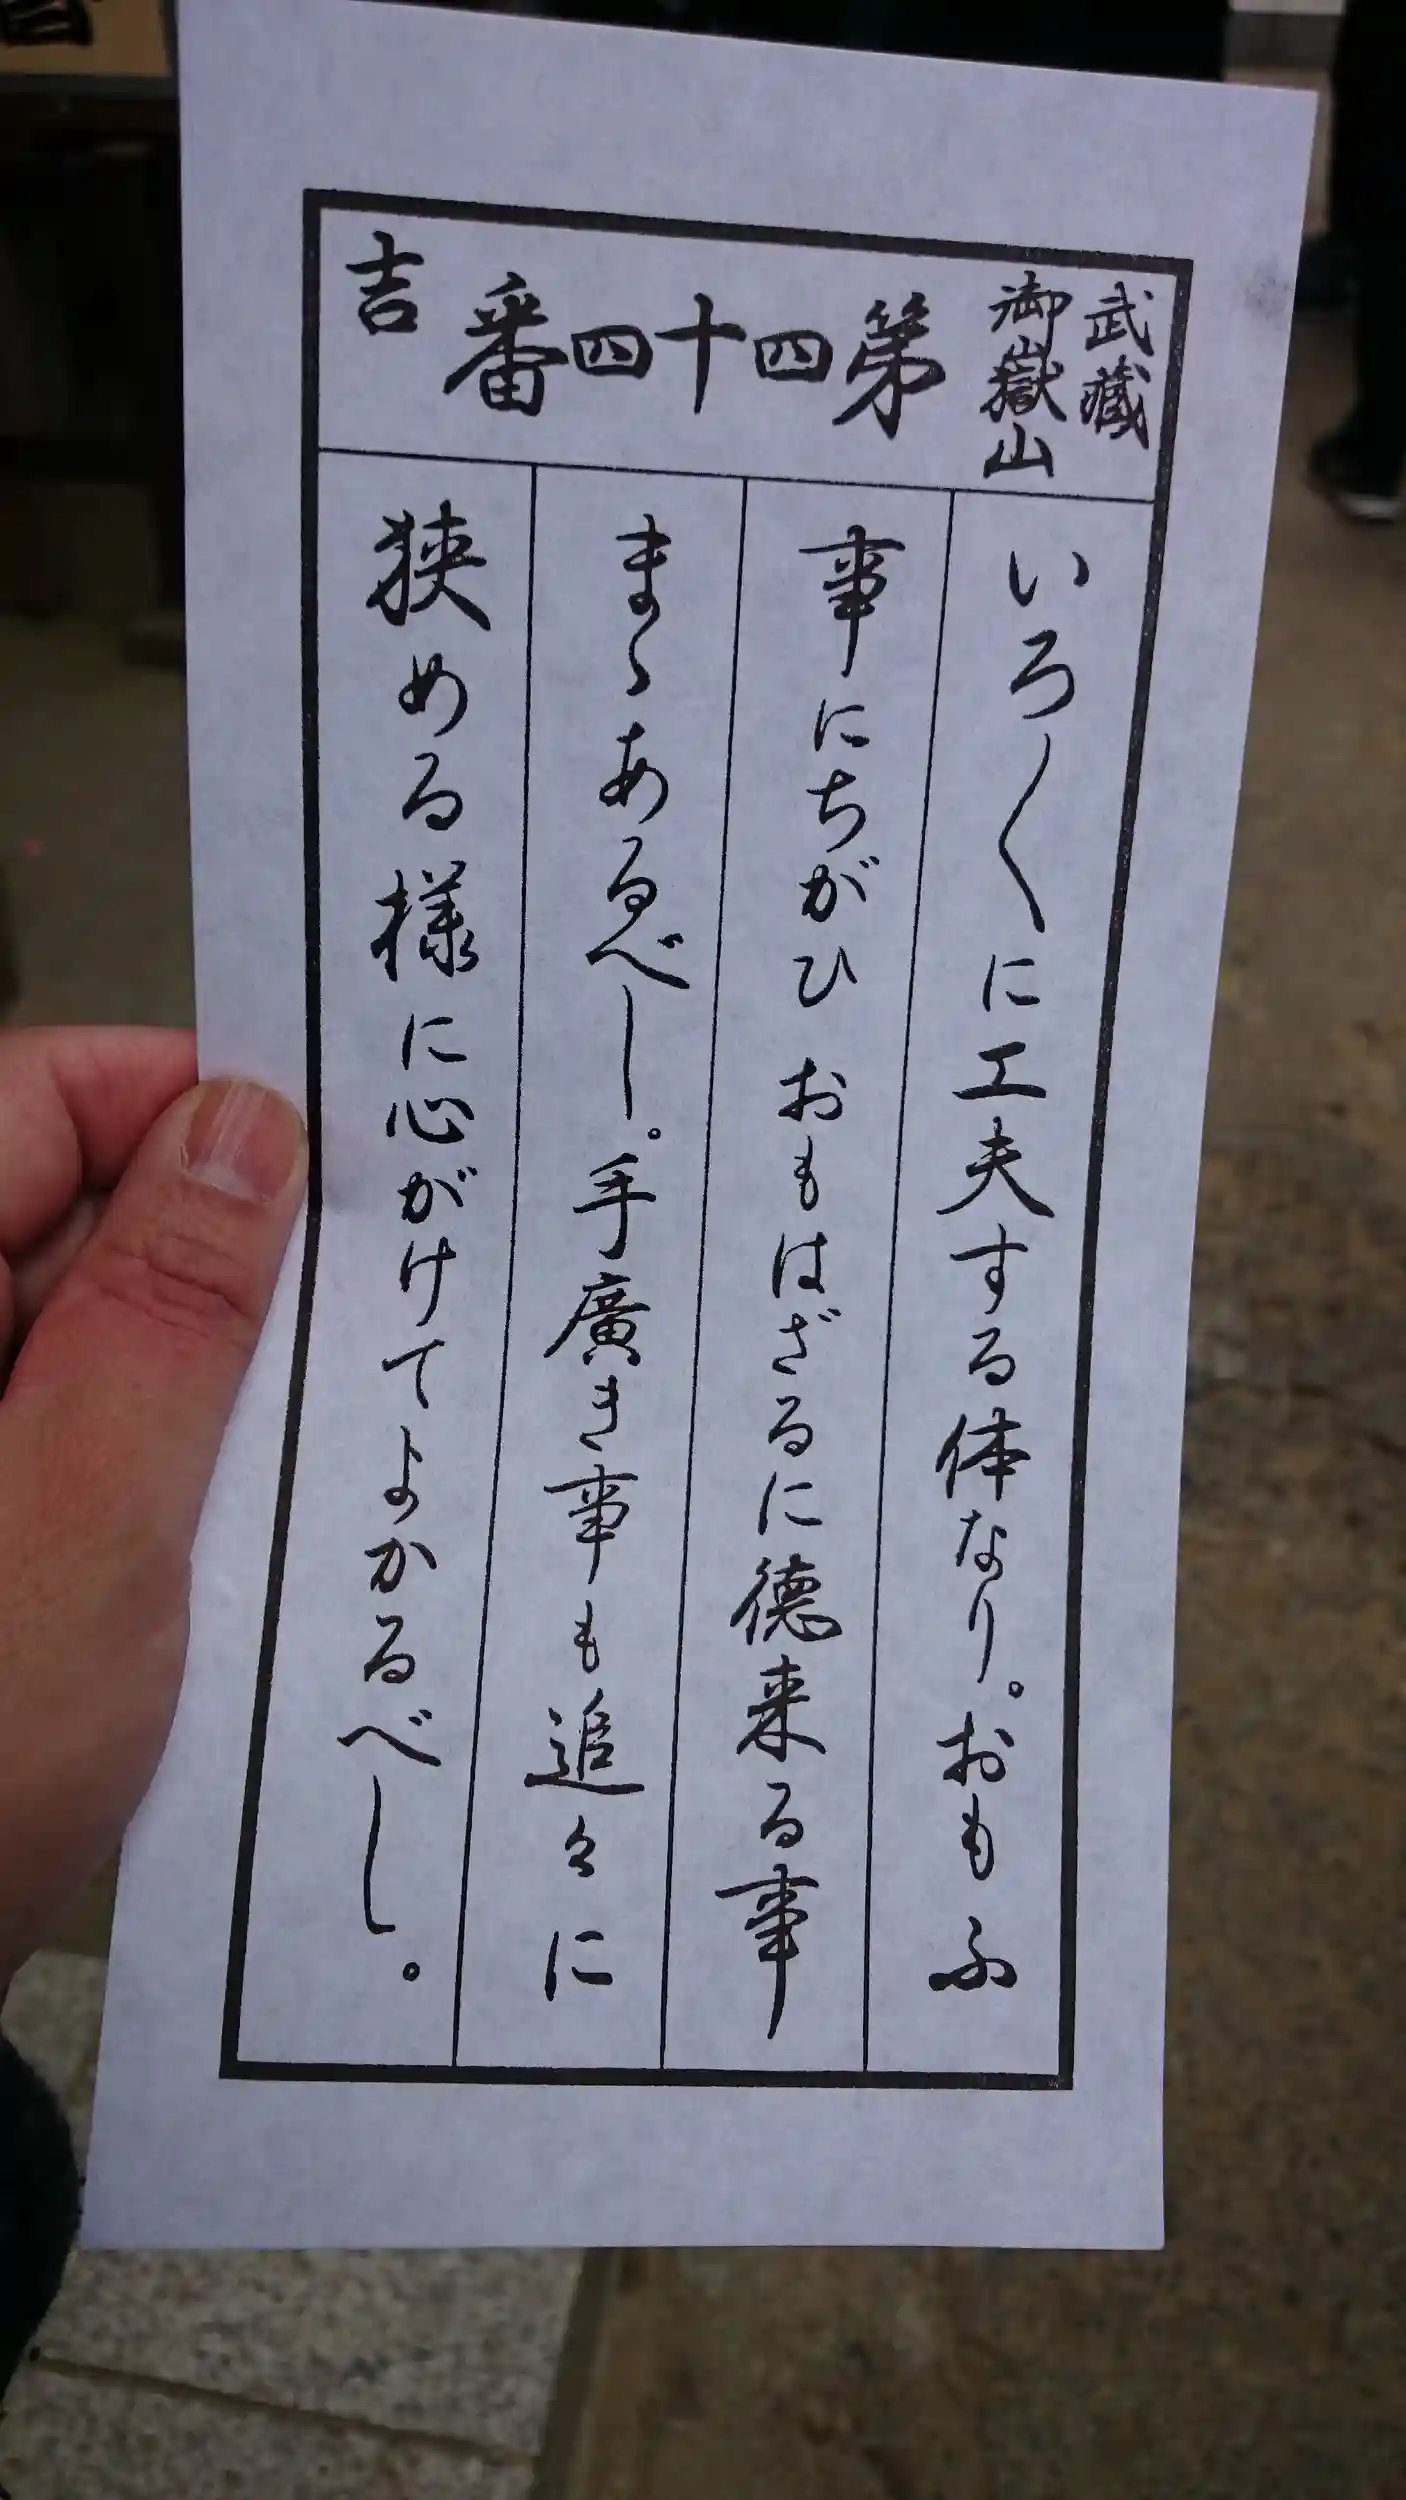 武蔵
御嶽山
第四十四番
吉
いろ〱に工夫する体なり。おもふ
事にちがひ おもはざるに徳来る事
まゝあるべし。手廣き事も追々に
狭める様に心がけてよかるべし。